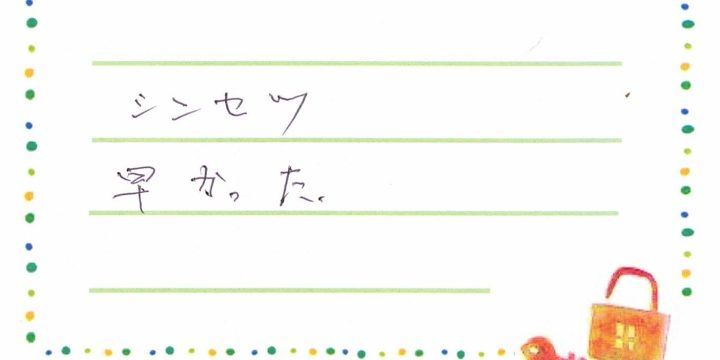 シンセツ
早かった.